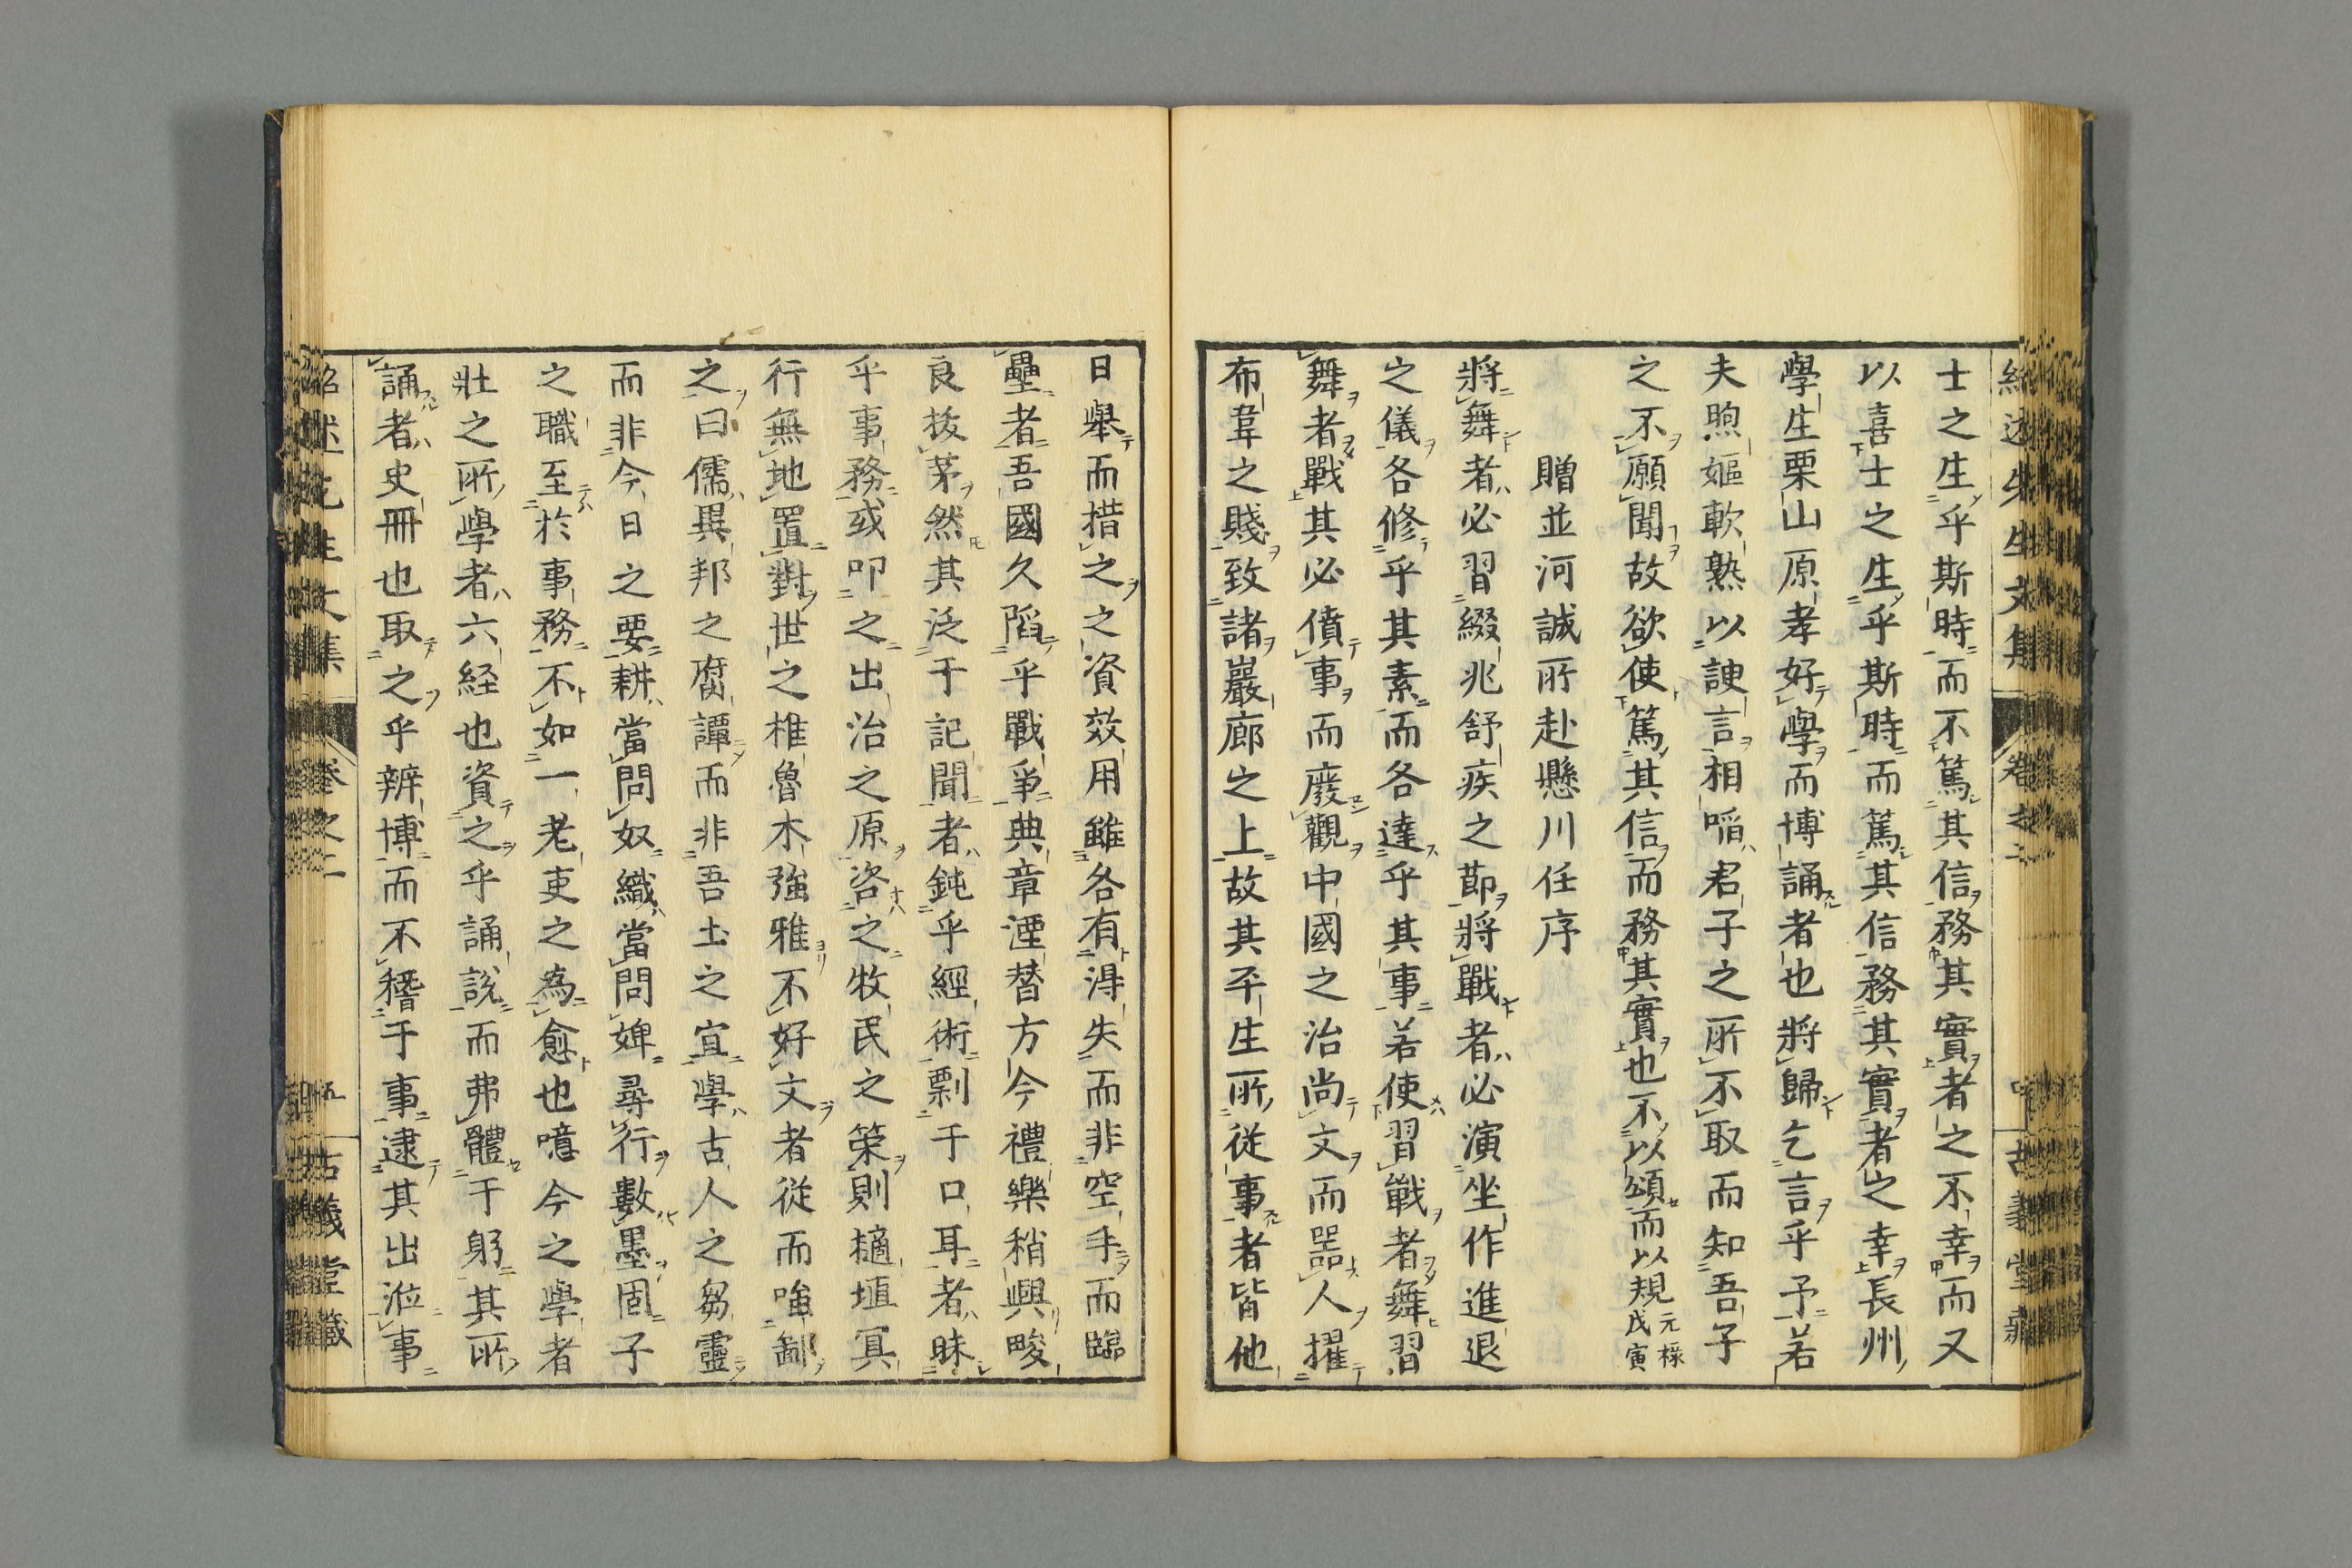 士之生乎斯時而不篤其信務其實者之不幸而又
以喜士之生乎斯時而篤其信務其實者之幸長州
學生栗山原孝好學而博誦者也將歸乞言乎予若
夫煦嫗軟熟以諛言相啗君子之所不取而知吾子
之不願聞故欲使篤其信而務其實也不以頌而以規元祿戊寅
贈並河誠所赴懸川任序
將舞者必習綴兆舒疾之節將戰者必演坐作進退
之儀各修乎其素而各達乎其事若使習戰者舞習
舞者戰其必僨事而廢觀中國之治尚文而器人擢
布韋之賤致諸巖廊之上故其平生所從事者皆他
日舉而措之之資效用雖各有得失而非空手而臨
壘者吾國久陷乎戰爭典章湮替方今禮樂稍興畯
良拔茅然其泛于記聞者鈍乎經術剽于口耳者昧
乎事務或叩之出治之原咨之牧民之策則擿埴冥
行無地置對世之椎魯木強雅不好文者從而嗤鄙
之曰儒異邦之腐譚而非吾土之宜學古人之芻靈
而非今日之要耕當問奴織當問婢尋行數墨固子
之職至於事務不如一老吏之為愈也噫今之學者
壯之所學者六経也資之乎誦説而弗體于躬其所
誦者史冊也取之乎辨博而不稽于事逮其出涖事
紹述先生文集 卷之二 五 古義堂藏